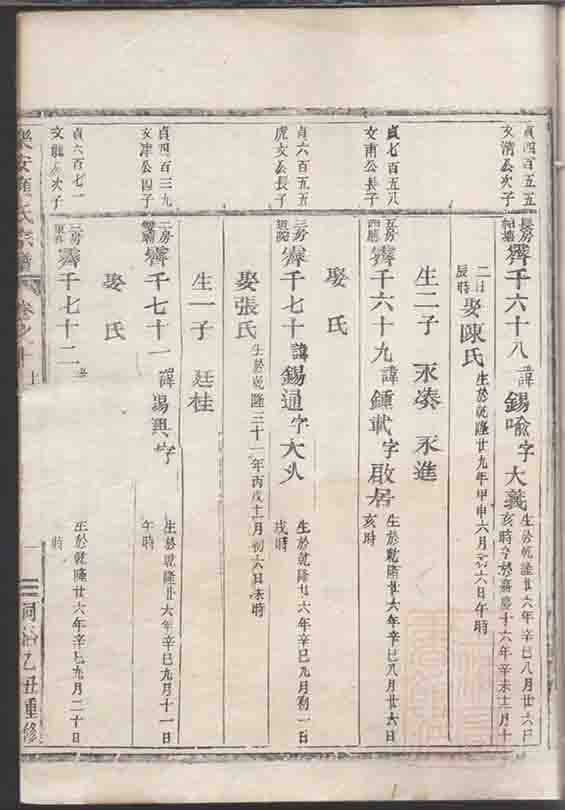 貞四百五五
文清公次子
長房
齊千六十八 諱錫喻字大義
生於乾隆廿六年辛巳八月廿六日
亥時 嘉慶十六年辛未十二月十
二日
辰時 娶陳氏 生於乾隆廿九年甲申六月初六日午時
生二子 永湊 永進
貞七百五八
文甫公長子
五房
齊千六十九 諱鍾載字啟居
生於乾隆廿六年辛巳八月廿六日
亥時
娶 氏
貞六百五五
虎文公長子
三房
齊千七十 諱錫通字大
生於乾隆廿六年辛巳九月初一日
戌時
娶張氏 生於乾隆三十一年丙戌十一月初六日未時
生一子 廷桂
貞四百三九
文津公四子
二房
齊千七十一 諱錫興字
生於乾隆廿六年辛巳九月十一日
午時
娶 氏
貞六百七一
文龍公次子
二房
齊千七十二
生於乾隆廿六年辛巳九月二十日
時
樂安 氏宗譜
卷之十 上
一
乙丑重修